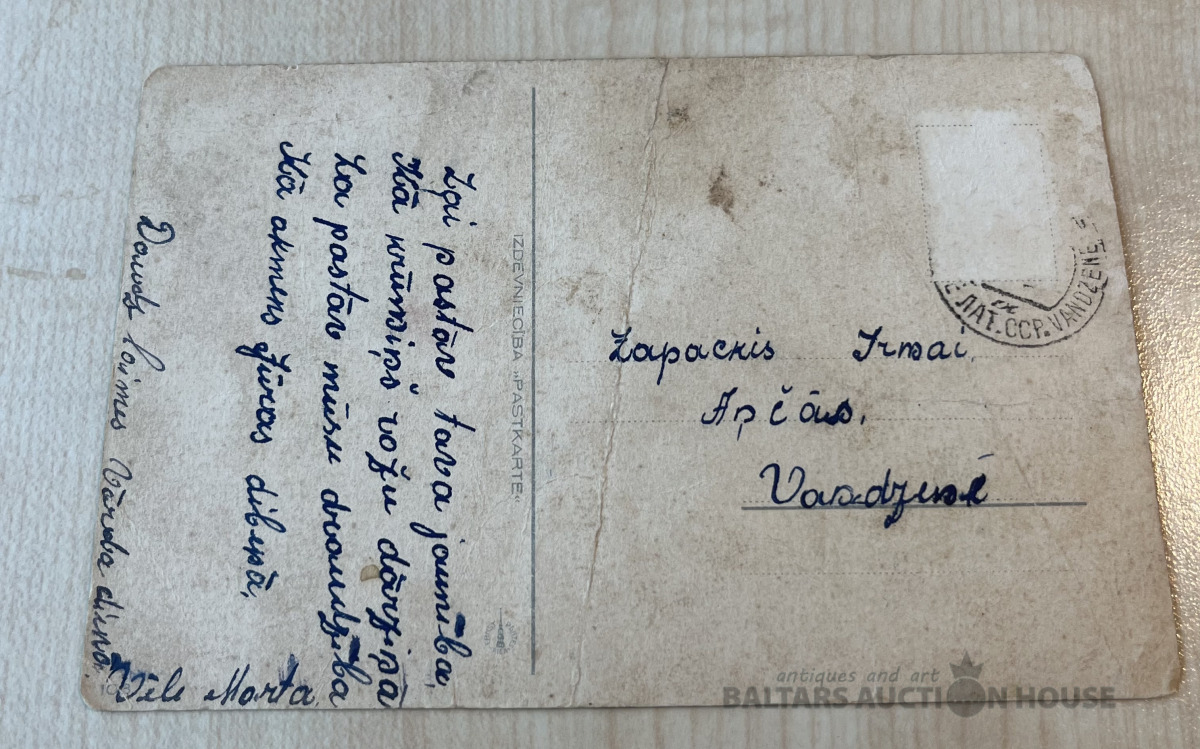 Lai pastāv tava jaunība,
Kā krūmiņš rožu dārziņā
Lai pastāv mūsu draudzība
Kā akmens jūras dibenā,
Daudz laimes Vārda dienā.
Vēl Marta
IZDEVNIECĪBA „PASTKARTE"
ЛАТ. ССР. VANDZENE
Lapackis Irmai,
Apčās,
Vandzenē
antiques and art
BALTARS AUCTION HOUSE